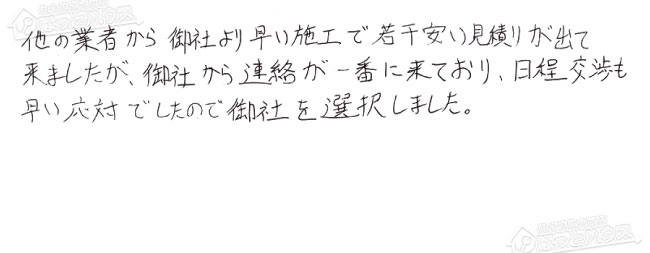 他の業者から御社より早い施工で若干安い見積りが出て
来ましたが、御社から連絡が一番に来ており、日程交渉も
早い応対でしたので御社を選択しました。